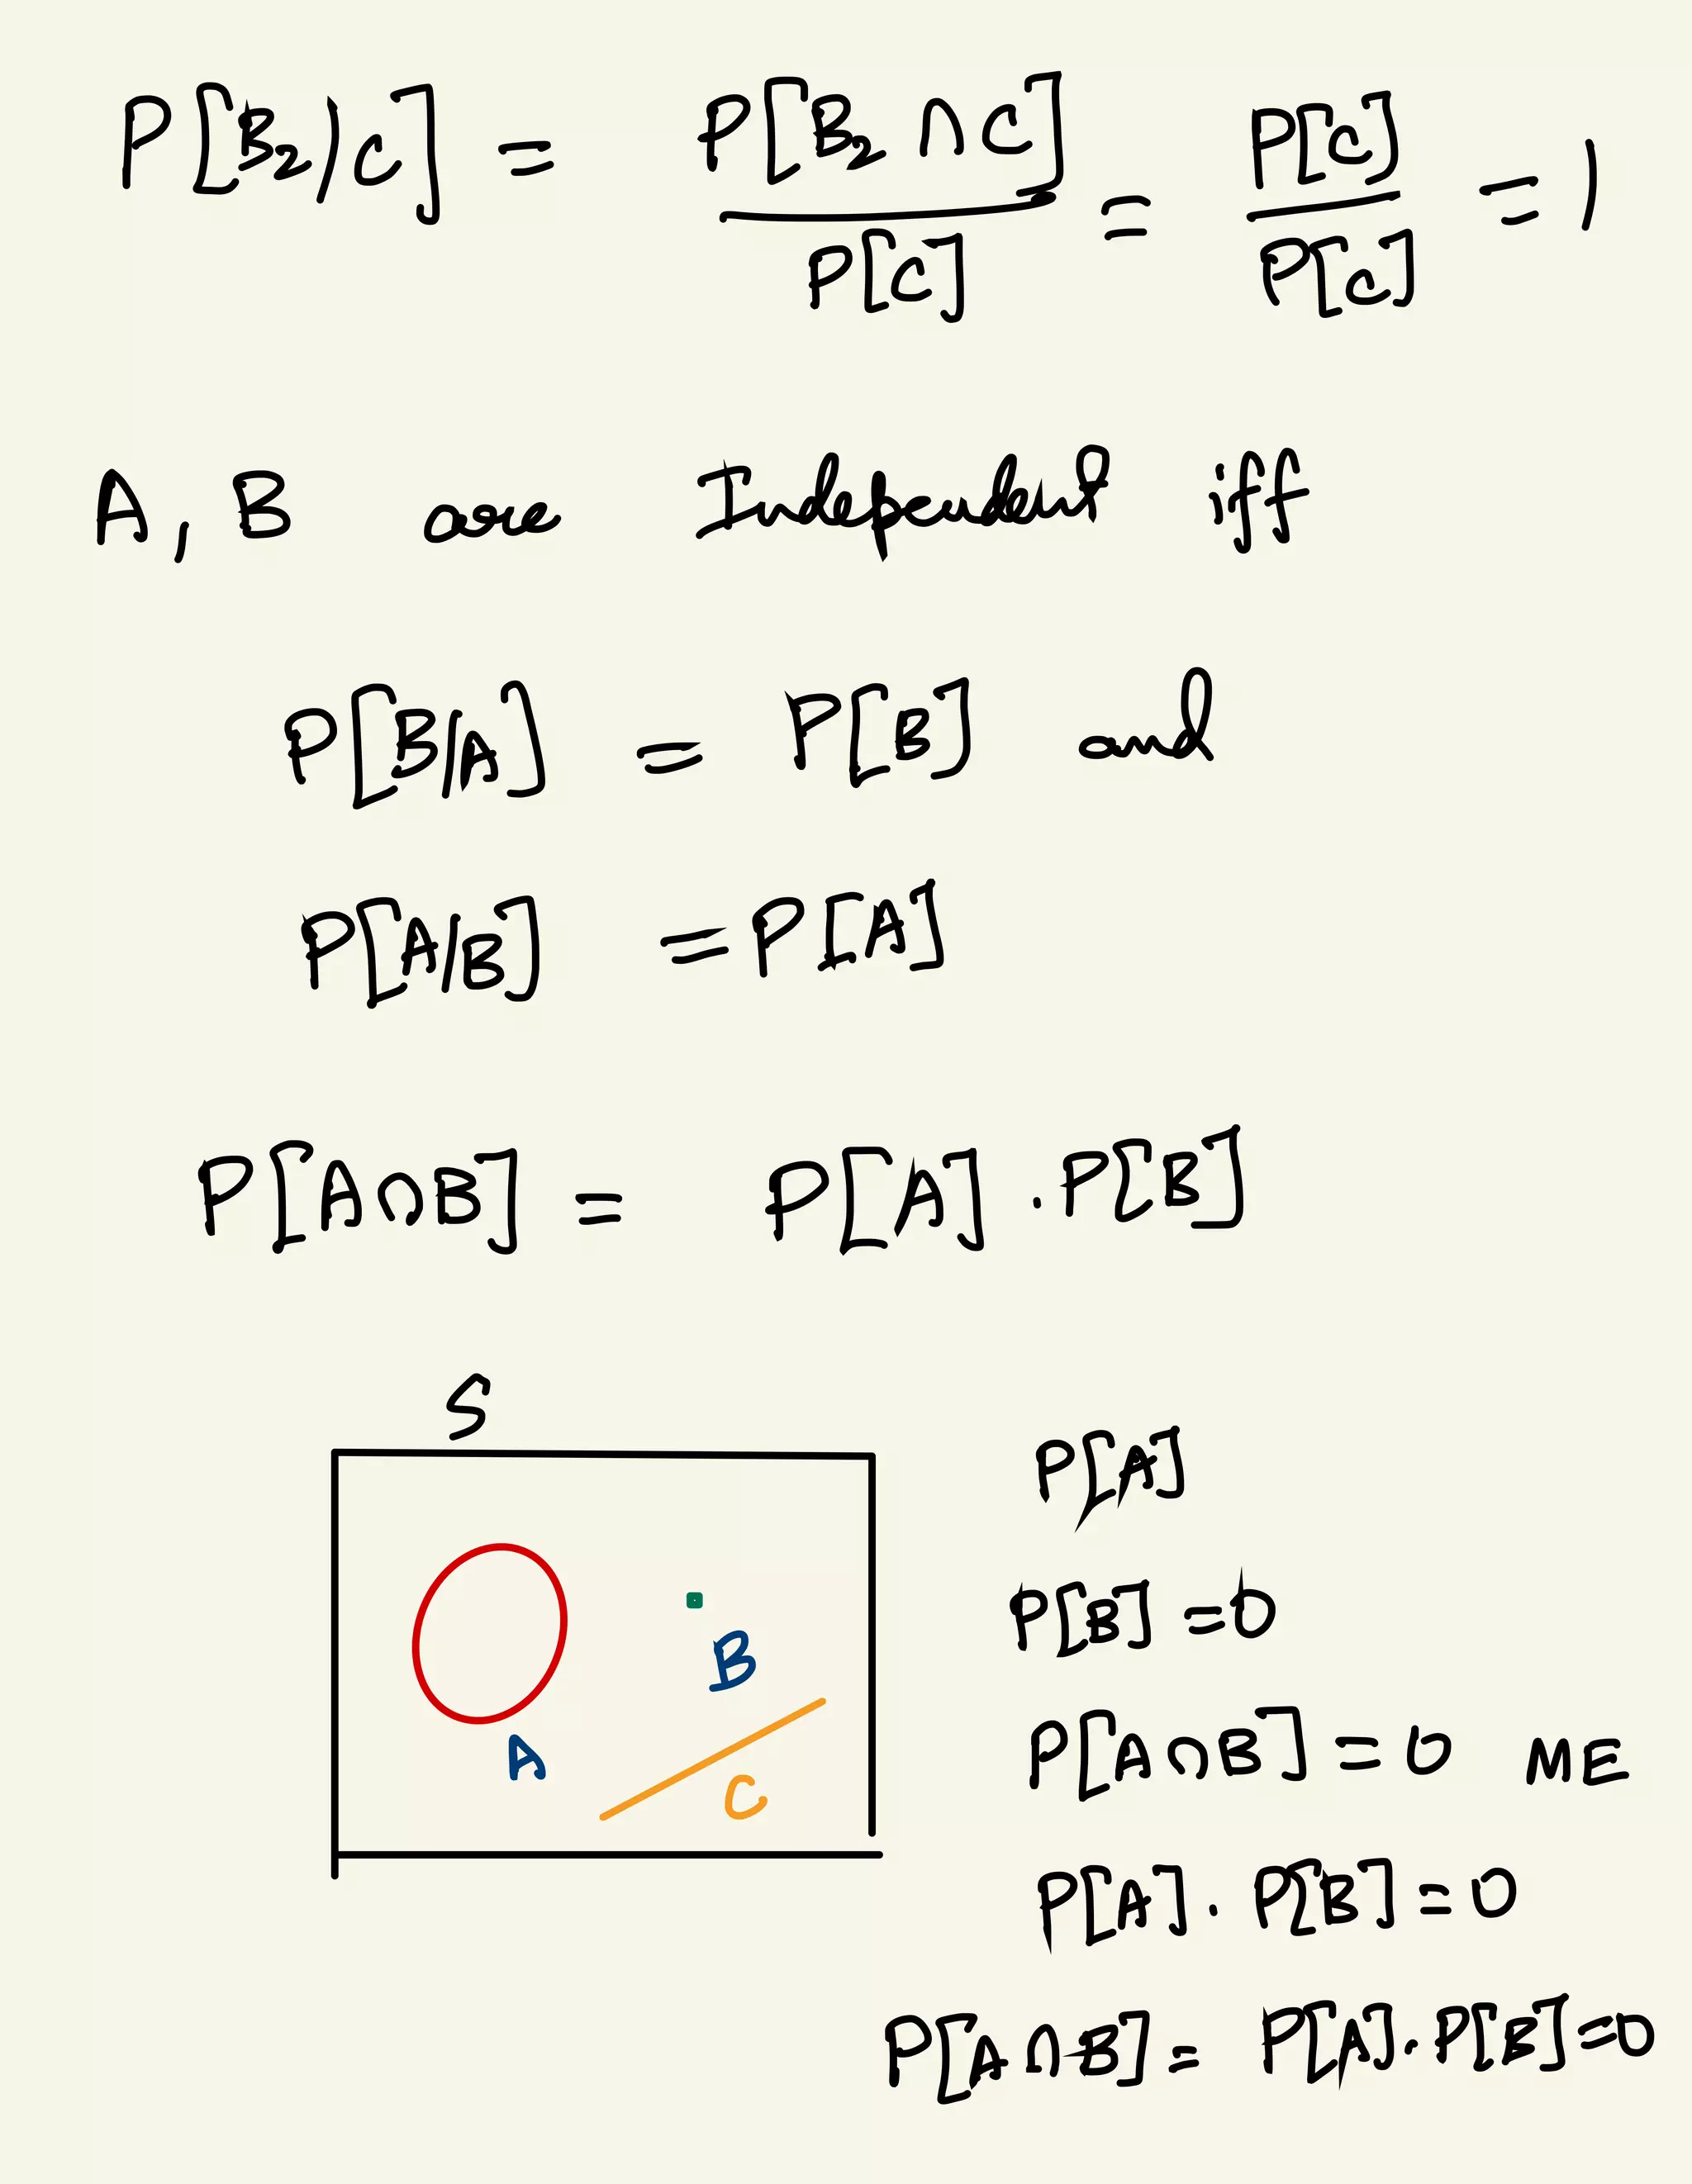 P[B₂/C] = P[B₂ ∩ C] / P[C] = P[C] / P[C] = 1
A, B are Independent iff
P[B/A] = P[B] and
P[A/B] = P[A]
P[A∩B] = P[A] . P[B]
S
P[A]
P[B] = 0
B
P[A∩B] = 0 ME
A
C
P[A] . P[B] = 0
P[A∩B] = P[A] . P[B] = 0